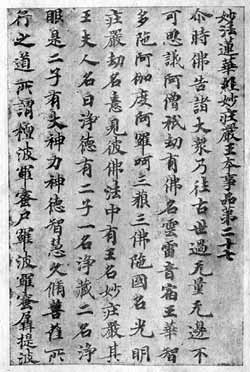 妙法蓮華經妙莊嚴王本事品第二十七
尒時佛告諸大衆乃往古世過无量无邊不
可思議阿僧祇劫有佛名雲雷音宿王華智
多陁阿伽度阿羅呵三藐三佛陁國名光明
莊嚴劫名憙見彼佛法中有王名妙莊嚴其
王夫人名曰淨德有二子一名淨藏二名淨
眼是二子有大神力福德智慧久脩菩薩所
行之道所謂檀波羅蜜尸羅波羅蜜羼提波